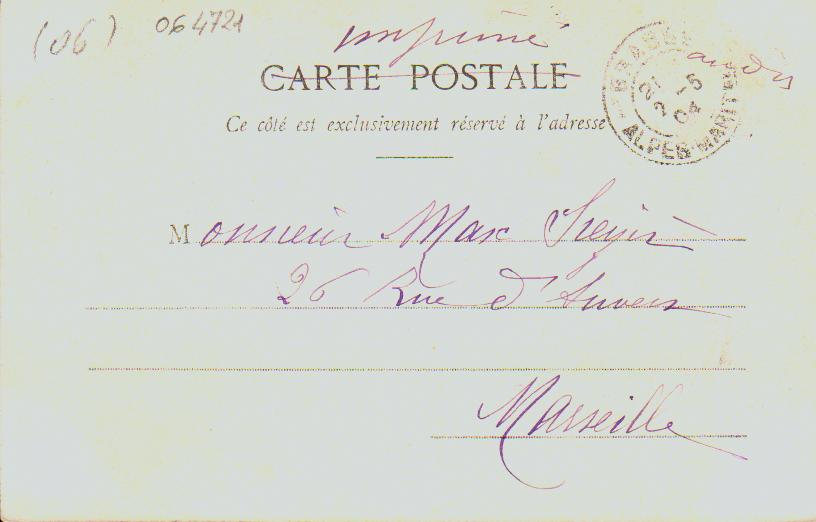 (06) 064721
imprimé
CARTE POSTALE
Ce côté est exclusivement réservé à l'adresse
GRASSE
21
2 -5
04
ALPES-MARITIMES
Monsieur Max
26 Rue d'Anvers
Marseille